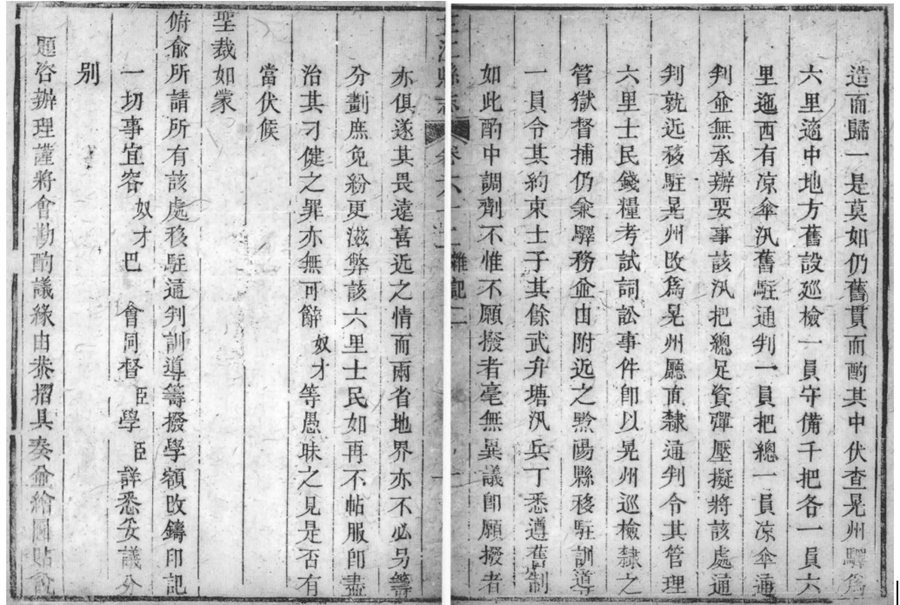 造而歸一是莫如仍舊貫而酌其中伏查晃州驛爲
六里適中地方舊設廵檢一員守備千把各一員六
里迤西有凉傘汛舊駐通判一員把總一員凉傘通
判並無承辦要事該汛把總足資彈壓擬將該處通
判就近移駐晃州改爲晃州廳直隸通判令其管理
六里士民錢糧考試詞訟事件卽以晃州巡檢隸之
管獄督捕仍兼驛務並由附近之黔陽縣移駐訓導
一員令其約束士子其餘武弁塘汛兵丁悉遵舊制
如此酌中調劑不惟不願撥者毫無異議卽願撥者
芷江縣志 卷六十一 雜記二
亦俱遂其畏遠喜近之情而兩省地界亦不必另籌
分劃庶免紛更滋弊該六里士民如再不帖服卽盡
治其刁健之罪亦無可辭奴才等愚昧之見是否有
當伏候
聖裁如蒙
俯俞所請所有該處移駐通判訓導籌撥學額改鑄印記
一切事宜容奴才巴 會同督臣學臣詳悉妥議分
别
題咨辦理謹將會勘酌議緣由恭摺具奏並繪圖貼說